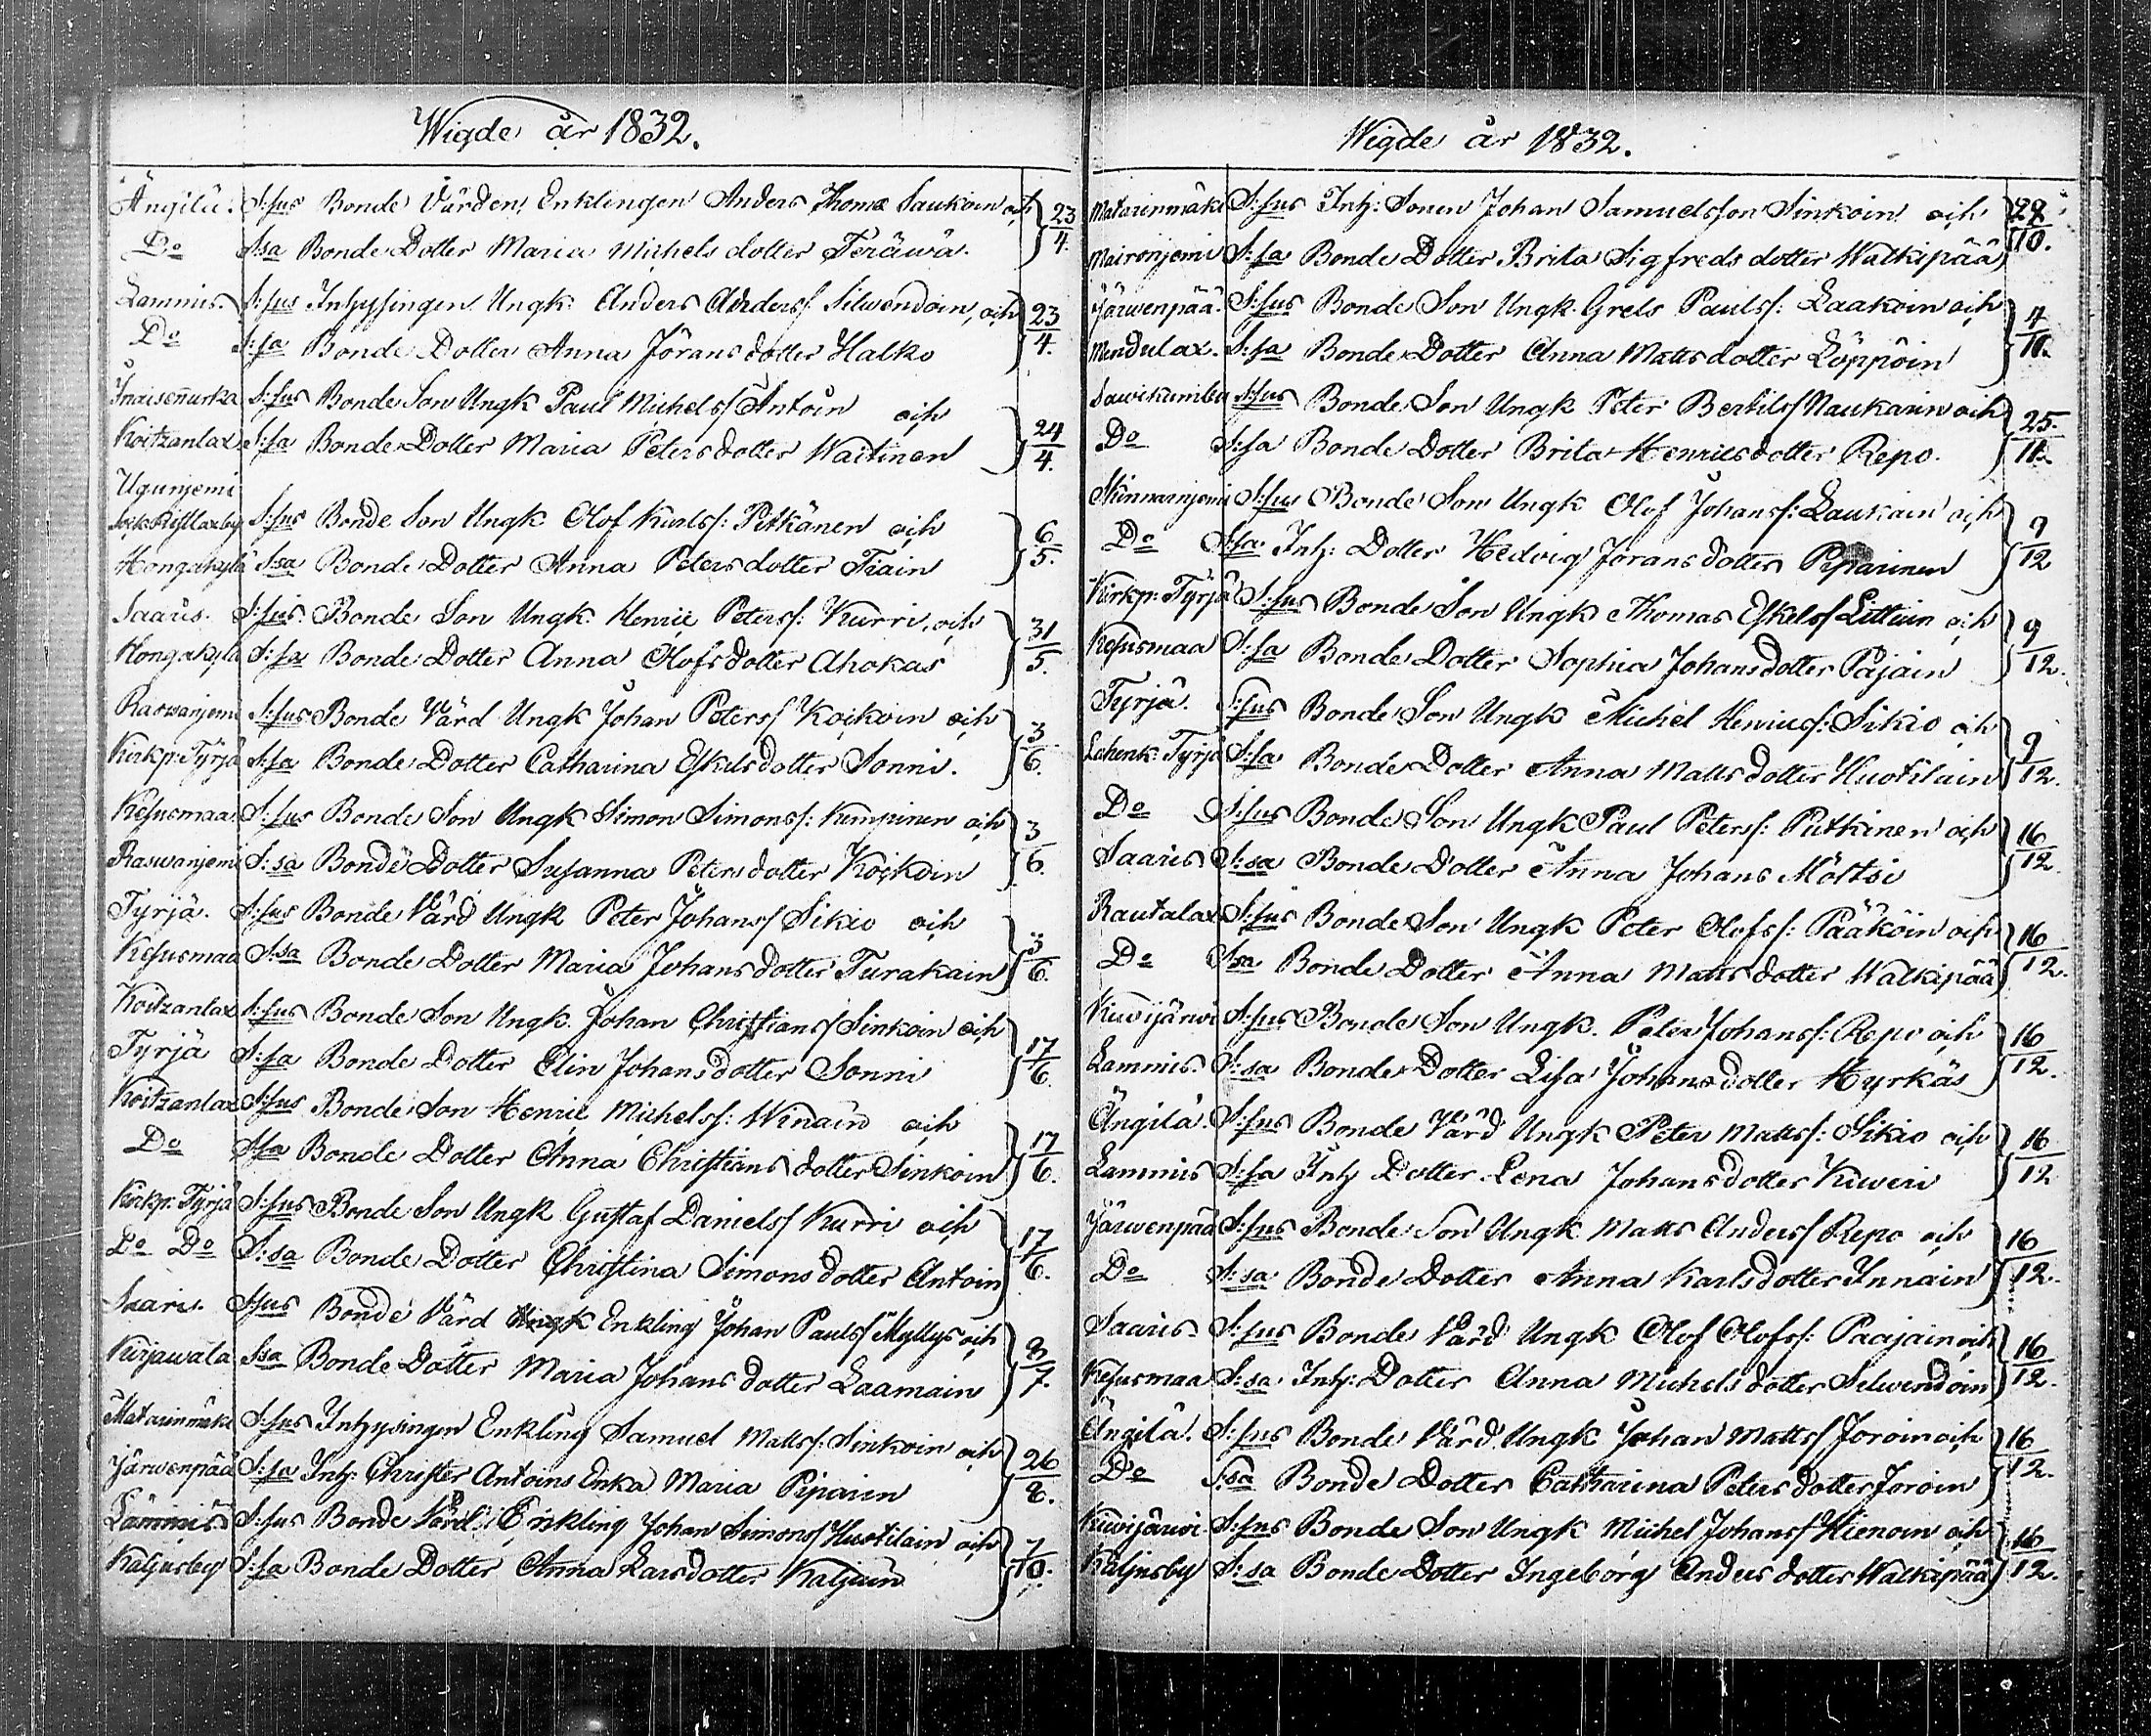 Wigde år 1832.
Ängilä. S:sus Bonde Värden Enklingen Anders Thomæ Saukoin och } 23/4.
Do S:sa Bonde Dotter Maria Michels dotter Teräwä.
Lammis. S:sus Inhysingen Ungk: Anders Anderss. Silwendoin, och } 23/4.
Do S:sa Bonde Dotter Anna Jörans dotter Halko
S:sus Bonde Son Ungk Paul Michelss Antoin och } 24/4.
Koitzanlax S:sa Bonde Dotter Maria Petersdotter Wartinen
Ugunjemi
S:sus Bonde Son Ungk Olof Karlss: Pitkänen och } 6/5.
Hongakylä S:sa Bonde Dotter Anna Petersdotter Tiain
Saaris. S:sus Bonde Son Ungk Henric Peterss: Kurri, och } 31/5.
Hongakylä S:sa Bonde Dotter Anna Olofsdotter Ahokas
Raswanjemi S:sus Bonde Värd Ungk Johan Peterss Koikoin och } 3/6.
Kirkp: Tyrjä S:sa Bonde Dotter Catharina Eskelsdotter Sonni.
Kesusmaa S:sus Bonde Son Ungk Simon Simonss: Kempinen och } 3/6.
Raswanjemi S:sa Bonde Dotter Susanna Petersdotter Koikoin
Tyrjä. S:sus Bonde Värd Ungk Peter Johanss Sikio och } 3/6.
Kesusmaa S:sa Bonde Dotter Maria Johansdotter Turakain
Koitzanlax S:sus Bonde Son Ungk. Johan Christianss Sinkoin och } 17/6.
Tyrjä S:sa Bonde Dotter Elin Johansdotter Sonni
Koitzanlax S:sus Bonde Son Henric Michelss: Winain och } 17/6.
Do S:sa Bonde Dotter Anna Christians dotter Sinkoin
Kirkp: Tyrjä S:sus Bonde Son Ungk Gustaf Danielss Kurri och } 17/6.
Do Do S:sa Bonde Dotter Christina Simonsdotter Antoin
Saaris. S:sus Bonde Värd Ungk Enkling Johan Paulss Myllys och } 8/7.
Kirjawala S:sa Bonde Dotter Maria Johans dotter Laamain
Matarinmäki S:sus Inhysingen Enkling Samuel Matts: Sinkoin och } 26/8.
Järwenpää S:sa Inh: Christer Antoins Enka Maria Piparin
Lammis S:sus Bonde Värd Enkling Johan Simonss Huotilain och } 7/10.
Kaljusby S:sa Bonde Dotter Anna Larsdotter Kaljuin
Wigde år 1832.
Matarinmäki S:sus Inh: Sonen Johan Samuelsson Sinkoin och } /10.
Maironjemi S:sa Bonde Dotter Brita Sigfreds dotter Walkipää
Järwenpää. S:sus Bonde Son Ungk. Grels Paulss: Laakoin och } 4/11.
Mendulax. S:sa Bonde Dotter Anna Mattsdotter Löppöin
S:sus Bonde Son Ungk Peter Bertilss Naukarin och } 25./11.
Do S:sa Bonde Dotter Brita Henricsdotter Repo.
Skinnarnjemi S:sus Bonde Son Ungk Olof Johanss: Laukain och } 9/12
Do S:sa Inh: Dotter Hedvig Joransdotter Piparinen
Kirkp: Tyrjä S:sus Bonde Son Ungk Thomas Eskelss Littuin och } 9/12.
Kesusmaa S:sa Bonde Dotter Sophia Johansdotter Pajain
Tyrjä. S:sus Bonde Son Ungk Michel Henricss: Sikio och } 9/12.
Lahenk: Tyrjä S:sa Bonde Dotter Anna Matts dotter Huotilain
Do S:sus Bonde Son Ungk Paul Peterss: Putkinen och } 16/12.
Saaris S:sa Bonde Dotter Anna Johans Möltsi
Rautalax S:sus Bonde Son Ungk Peter Olofss: Pääköin och } 16/12.
Do S:sa Bonde Dotter Anna Matts dotter Walkipää
Kiwijärwi S:sus Bonde Son Ungk. Peter Johanss: Repo och } 16/12.
Lammis. S:sa Bonde Dotter Lisa Johansdotter Hyrkäs
Ängilä. S:sus Bonde Värd Ungk Peter Mattss: Sikio och } 16/12
Lammis S:sa Inh Dotter Lena Johansdotter Kiweri
Järwenpää S:sus Bonde Son Ungk Matts Anderss Repo och } 16/12.
Do S:sa Bonde Dotter Anna Karlsdotter Innain
Saaris. S:sus Bonde Värd Ungk Olof Olofss: Paajain och } 16/12.
Kesusmaa S:sa Inh: Dotter Anna Michelsdotter Silwendoin
Ängilä. S:sus Bonde Värd Ungk Johan Mattss Joroin och } 16/12.
Do S:sa Bonde Dotter Catharina Petersdotter Joroin
Kiwijärwi S:sus Bonde Son Ungk Michel Johanss Hienoin och } 16/12.
Kaljusby S:sa Bonde Dotter Ingeborg Anders dotter Walkipää